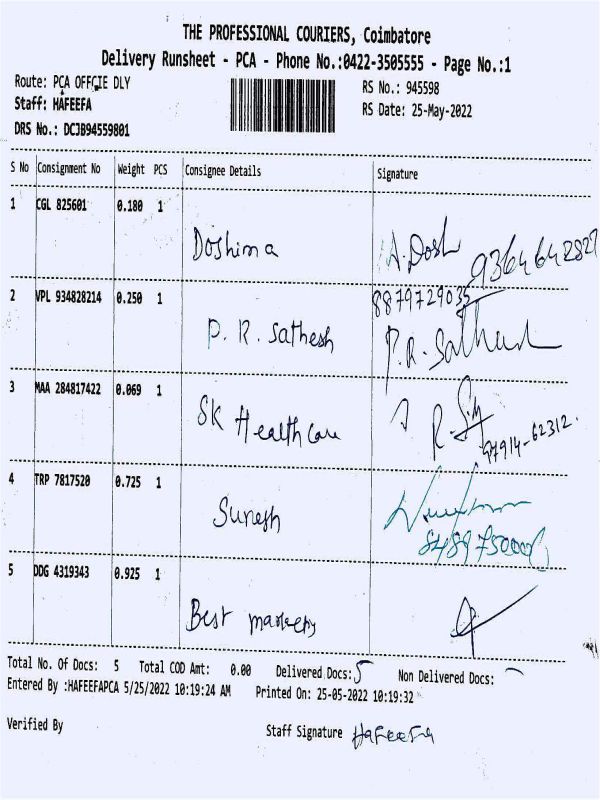 THE PROFESSIONAL COURIERS, Coimbatore
Delivery Runsheet - PCA - Phone No.:0422-3505555 - Page No.:1
Route: PCA OFFCIE DLY
RS No.: 945598
Staff: HAFEEFA
RS Date: 25-May-2022
DRS No.: DCJB94559801
S No Consignment No Weight PCS Consignee Details Signature
1 CGL 825601 0.180 1
Doshima A. Dosh 9364642827
2 VPL 934828214 0.250 1 8879729035
P. R. Sathesh P.R. Sathesh
3 MAA 284817422 0.069 1
SK Healthcare R. 97914-62312.
4 TRP 7817520 0.725 1
Suresh
5 DDG 4319343 0.925 1
Best
Total No. Of Docs: 5 Total COD Amt: 0.00 Delivered Docs: 5 Non Delivered Docs: -
Entered By :HAFEEFAPCA 5/25/2022 10:19:24 AM Printed On: 25-05-2022 10:19:32
Verified By Staff Signature Hafeefa